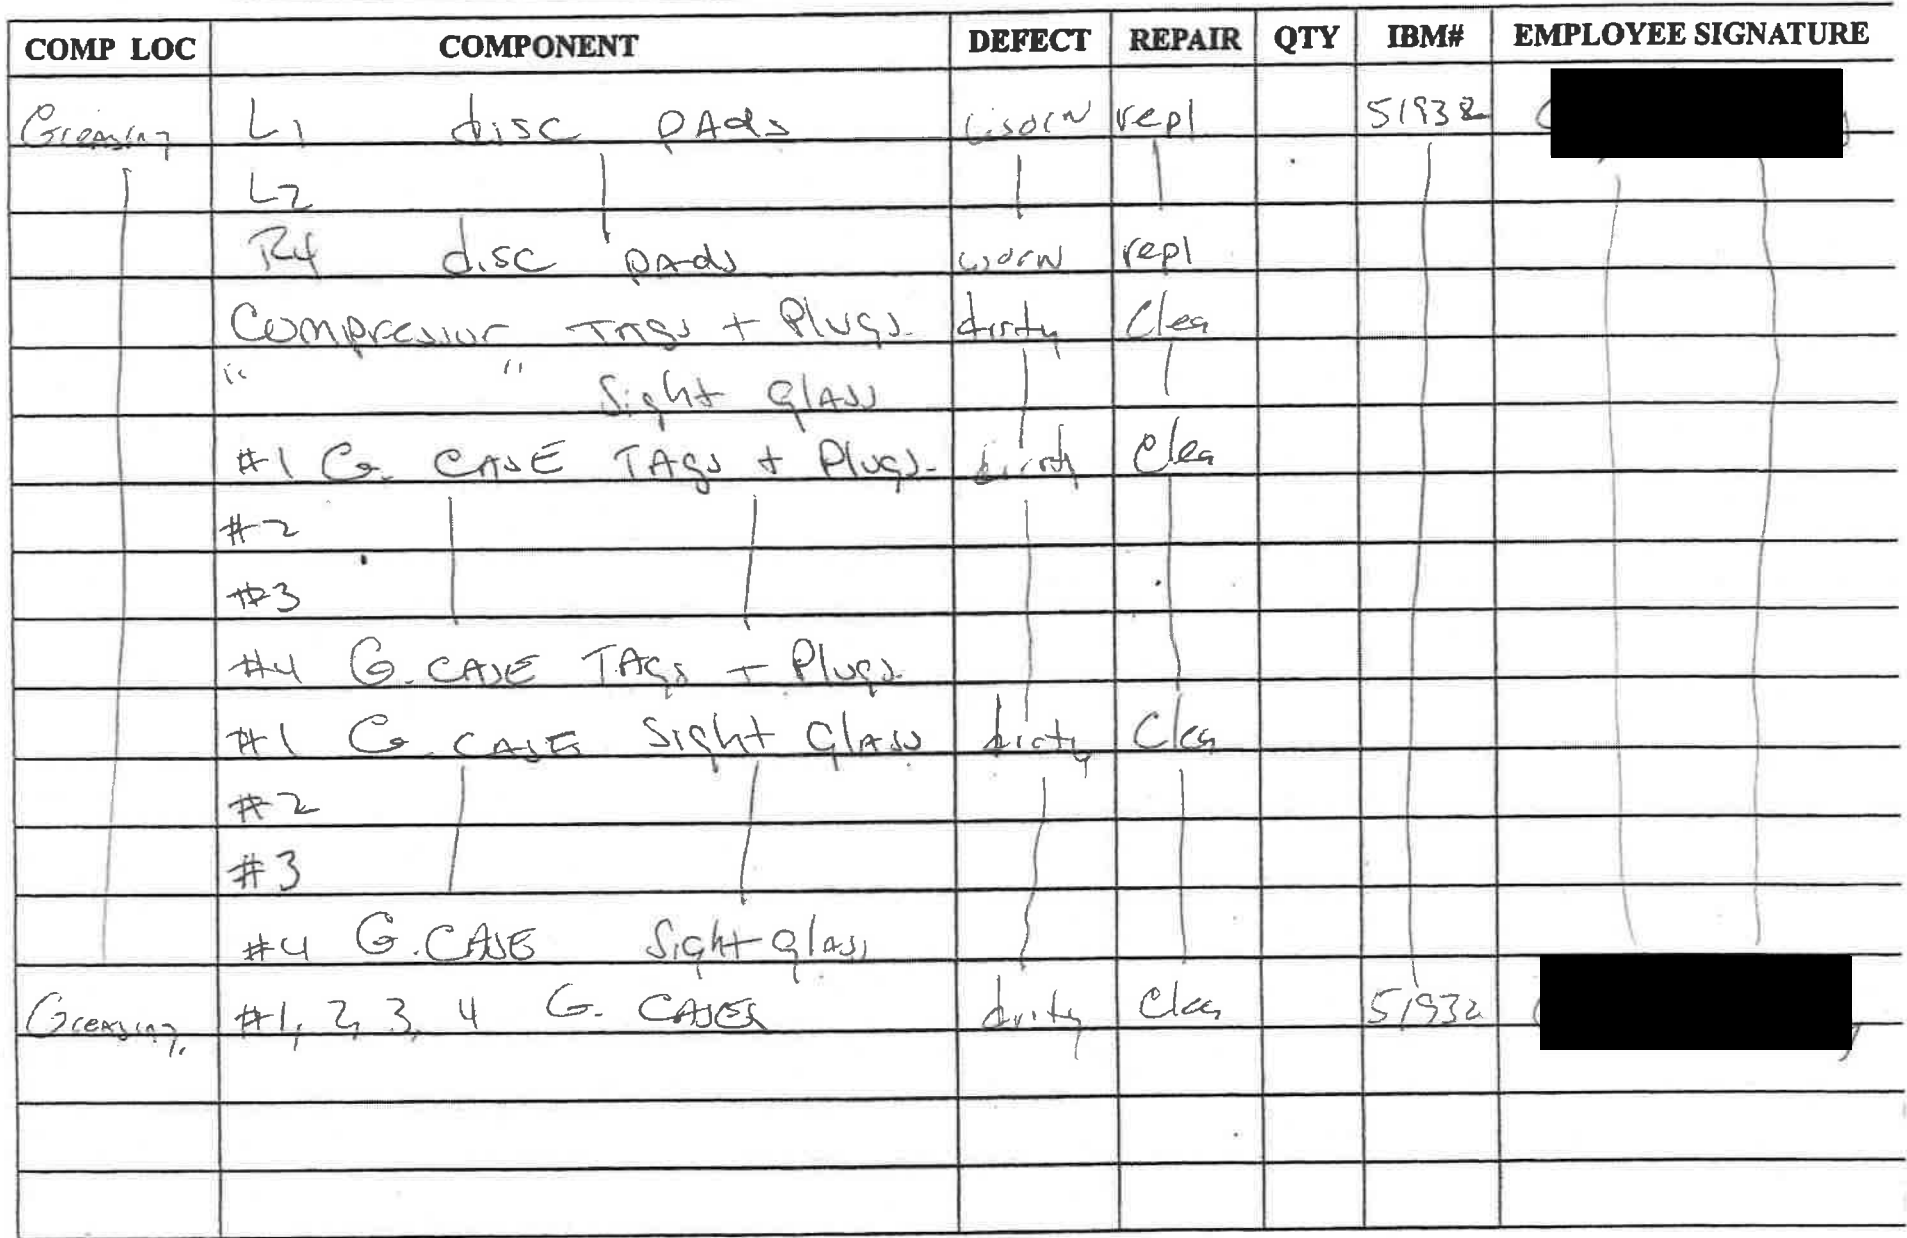 COMP LOC COMPONENT DEFECT REPAIR QTY IBM# EMPLOYEE SIGNATURE
Greasing L1 disc PAds worn repl 51932
L2
R4 disc pAds worn repl
Compressor TAgs + Plugs dirty Clea
" " Sight glAss
#1 G. CASE TAgs + Plugs dirty Clea
#2
#3
#4 G. CASE TAgs + Plugs
#1 G. CASE Sight GlAss dirty Clea
#2
#3
#4 G. CASE Sight glAss
Greasing #1, 2, 3, 4 G. CASES dirty Clea 51932